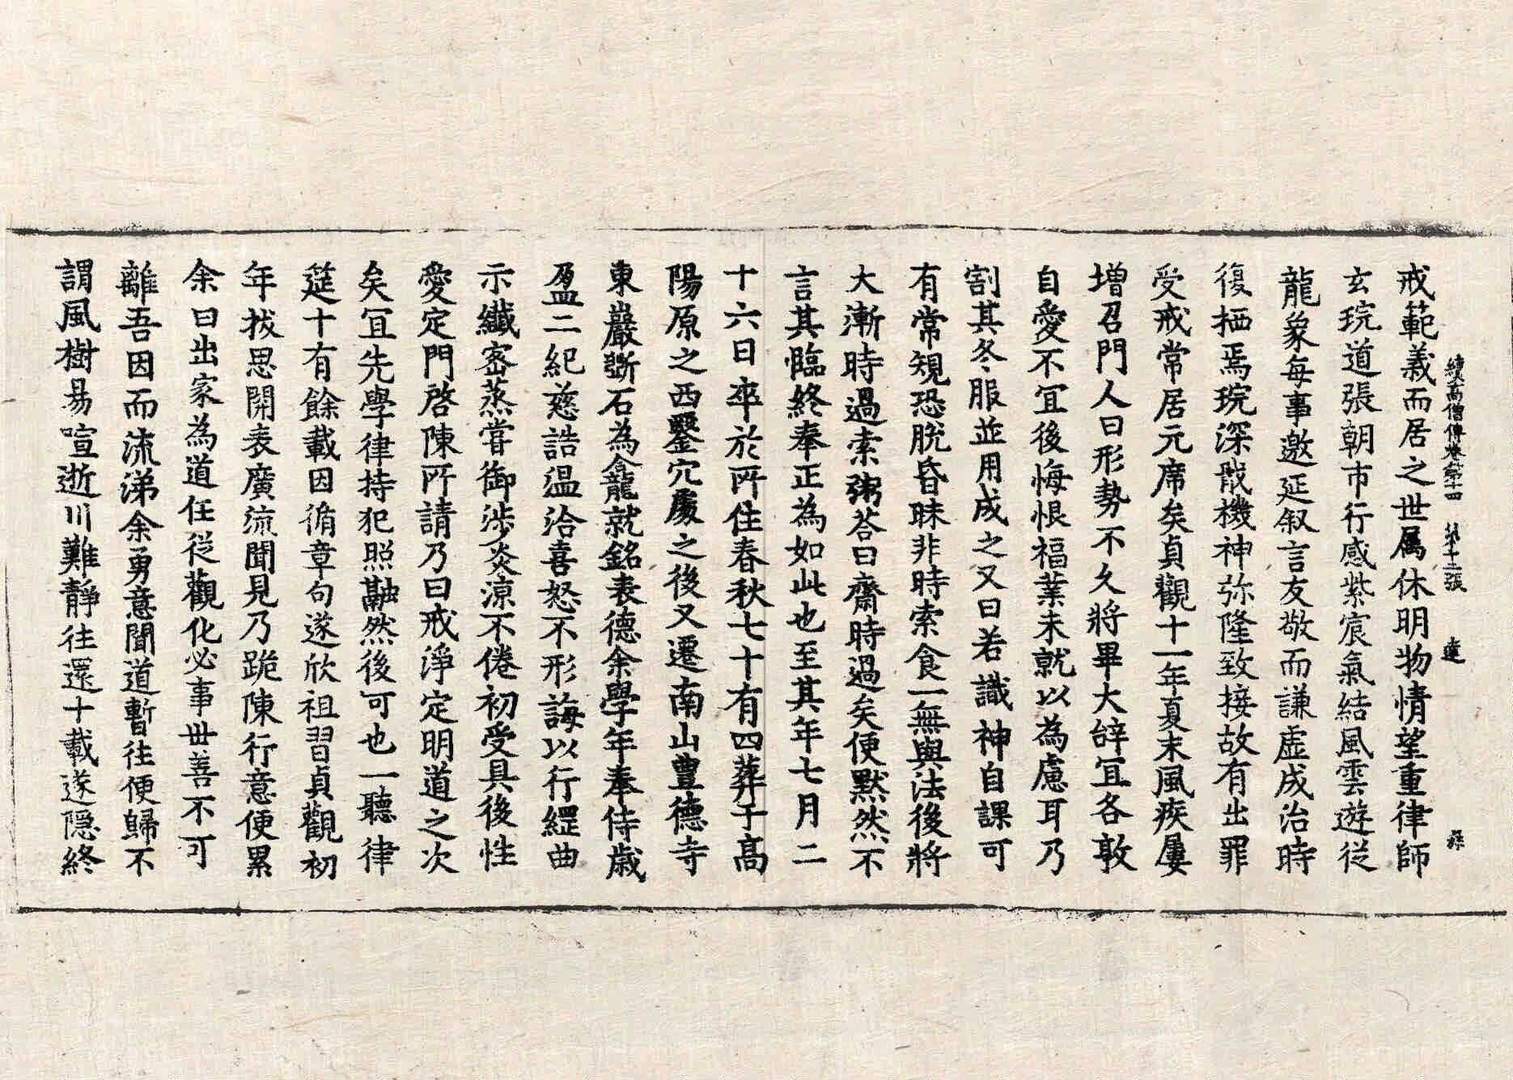 續高僧傳卷第十四 第十二張 達
戒範義而居之世属休明物情望重律師
玄琬道張朝市行感紫宸氣結風雲遊從
龍象每事邀延叙言友敬而謙虚成治時
復栖焉琬深戢機神弥隆致接故有出罪
受戒常居元席矣貞觀十一年夏末風疾屢
增召門人曰形勢不久將畢大辝冝各敦
自愛不冝後悔恨福業未就以為慮耳乃
割其冬服並用成之又曰若識神自課可
有常規恐脫昏昧非時索食一無與法後將
大漸時過索粥荅曰齋時過矣便默然不
言其臨終奉正為如此也至其年七月二
十六日卒於所住春秋七十有四葬于高
陽原之西鑿穴處之後又遷南山豊德寺
東巖斲石為龕就銘表德余學年奉侍歳
盈二紀慈誥温洽喜怒不形誨以行綱曲
示纖密蒸嘗御涉炎涼不倦初受具後性
愛定門啓陳所請乃曰戒淨定明道之次
矣冝先學律持犯照融然後可也一聽律
筵十有餘載因循章句遂欣祖習貞觀初
年拔思開表廣流聞見乃跪陳行意便累
余曰出家為道任從觀化必事世善不可
離吾因而流涕余勇意聞道暫往便歸不
謂風樹易喧逝川難靜往還十載遂隠終